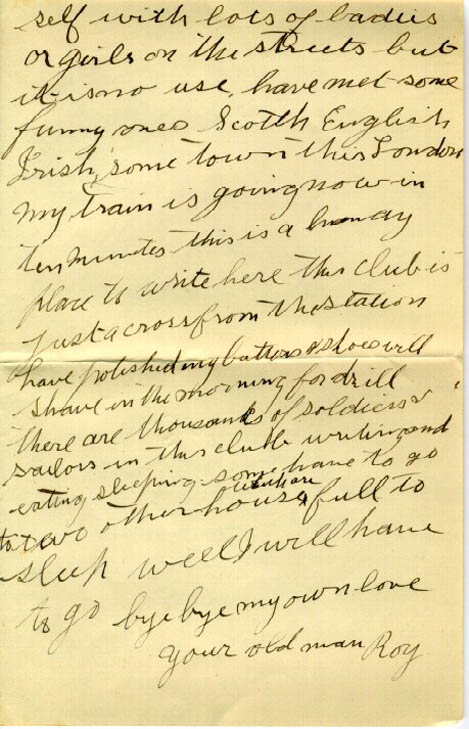 self with lots of ladies
or girls on the streets but
it is no use, have met some
funny ones Scotth English
Irish, some town this London
my train is going now in
ten minutes this is a handy
place to write here this club is
just across from the station
have polished my buttons & shoes will
shave in the morning for drill
there are thousands of soldiers &
sailors in this club writing and
eating sleeping some have to go
to two other houses which are full to
sleep well I will have
to go bye bye my own love
your old man Roy